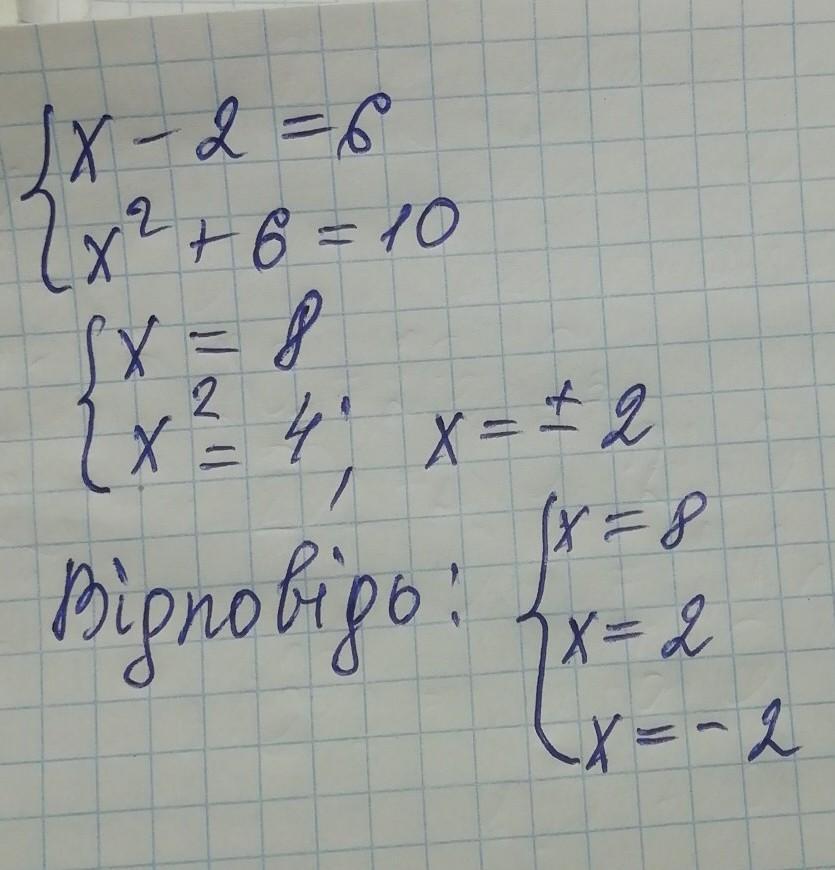 x - 2 = 6
x² + 6 = 10
x = 8
x² = 4; x = ± 2
Відповідь: x = 8
x = 2
x = - 2